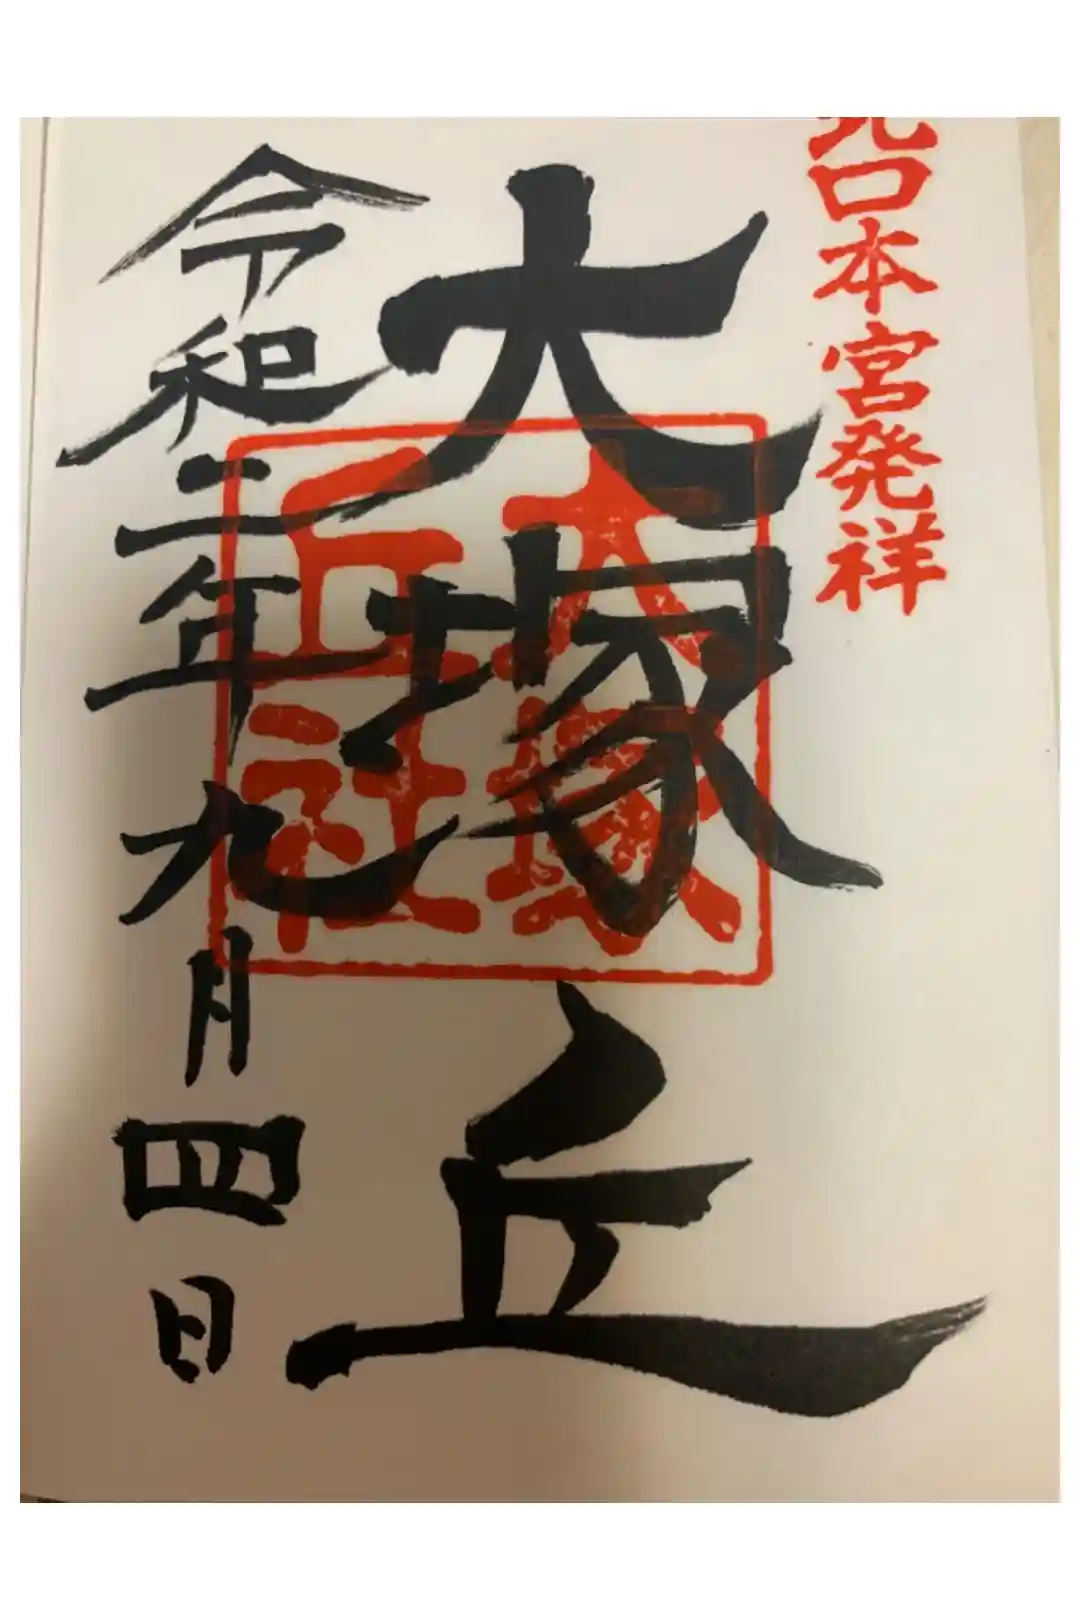 北口本宮発祥
大塚丘
大塚
丘社
令和二年九月四日